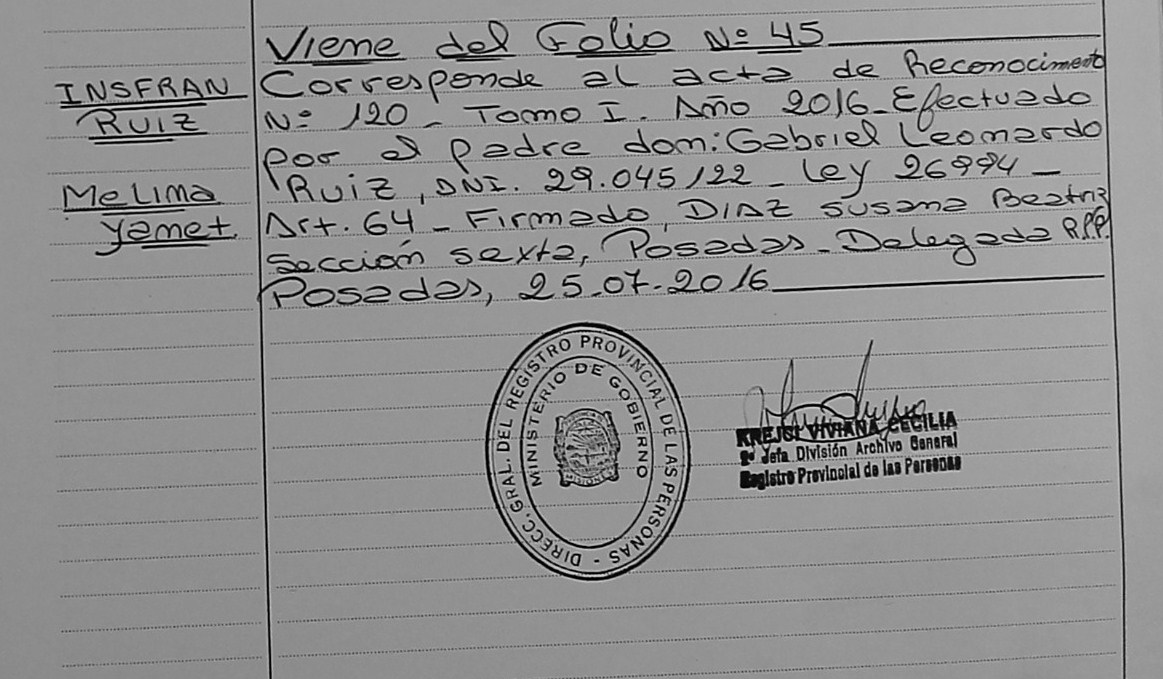 Viene del Folio Nº 45
INSFRAN
RUIZ
Melina
Yamet.
Corresponde al acta de Reconocimento
Nº 120 - Tomo I. Año 2016 - Efectuado
por el padre don: Gabriel Leonardo
Ruiz, DNI. 29.045122 - Ley 26994 -
Art. 64 - Firmado, DIAZ Susana Beatriz
Sección sexta, Posadas - Delegada R.P.P.
Posadas, 25-07-2016
DIRECC. GRAL. DEL REGISTRO PROVINCIAL DE LAS PERSONAS -
MINISTERIO DE GOBIERNO
MISIONES
KREJCI VIVIANA CECILIA
Jefa División Archivo General
Registro Provincial de las Personas